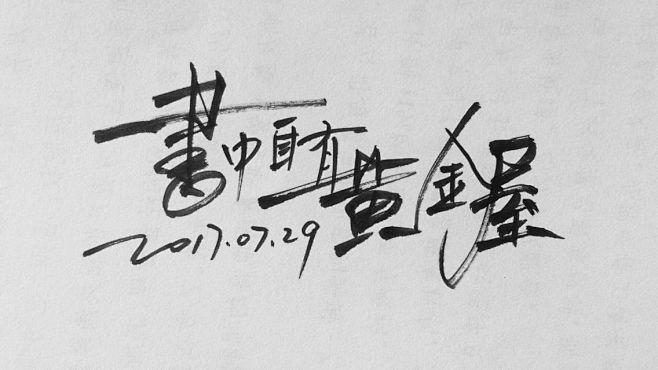 書中自有黄金屋
2017.07.29